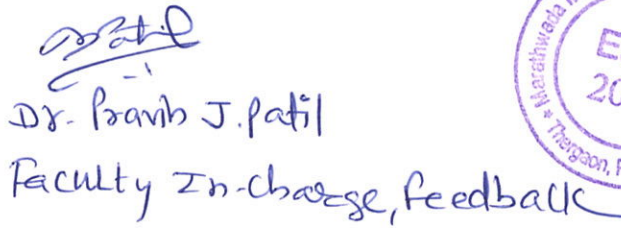 Dr. Pravin J. Patil
Faculty In-charge, feedback
Marathwada
Thergaon,